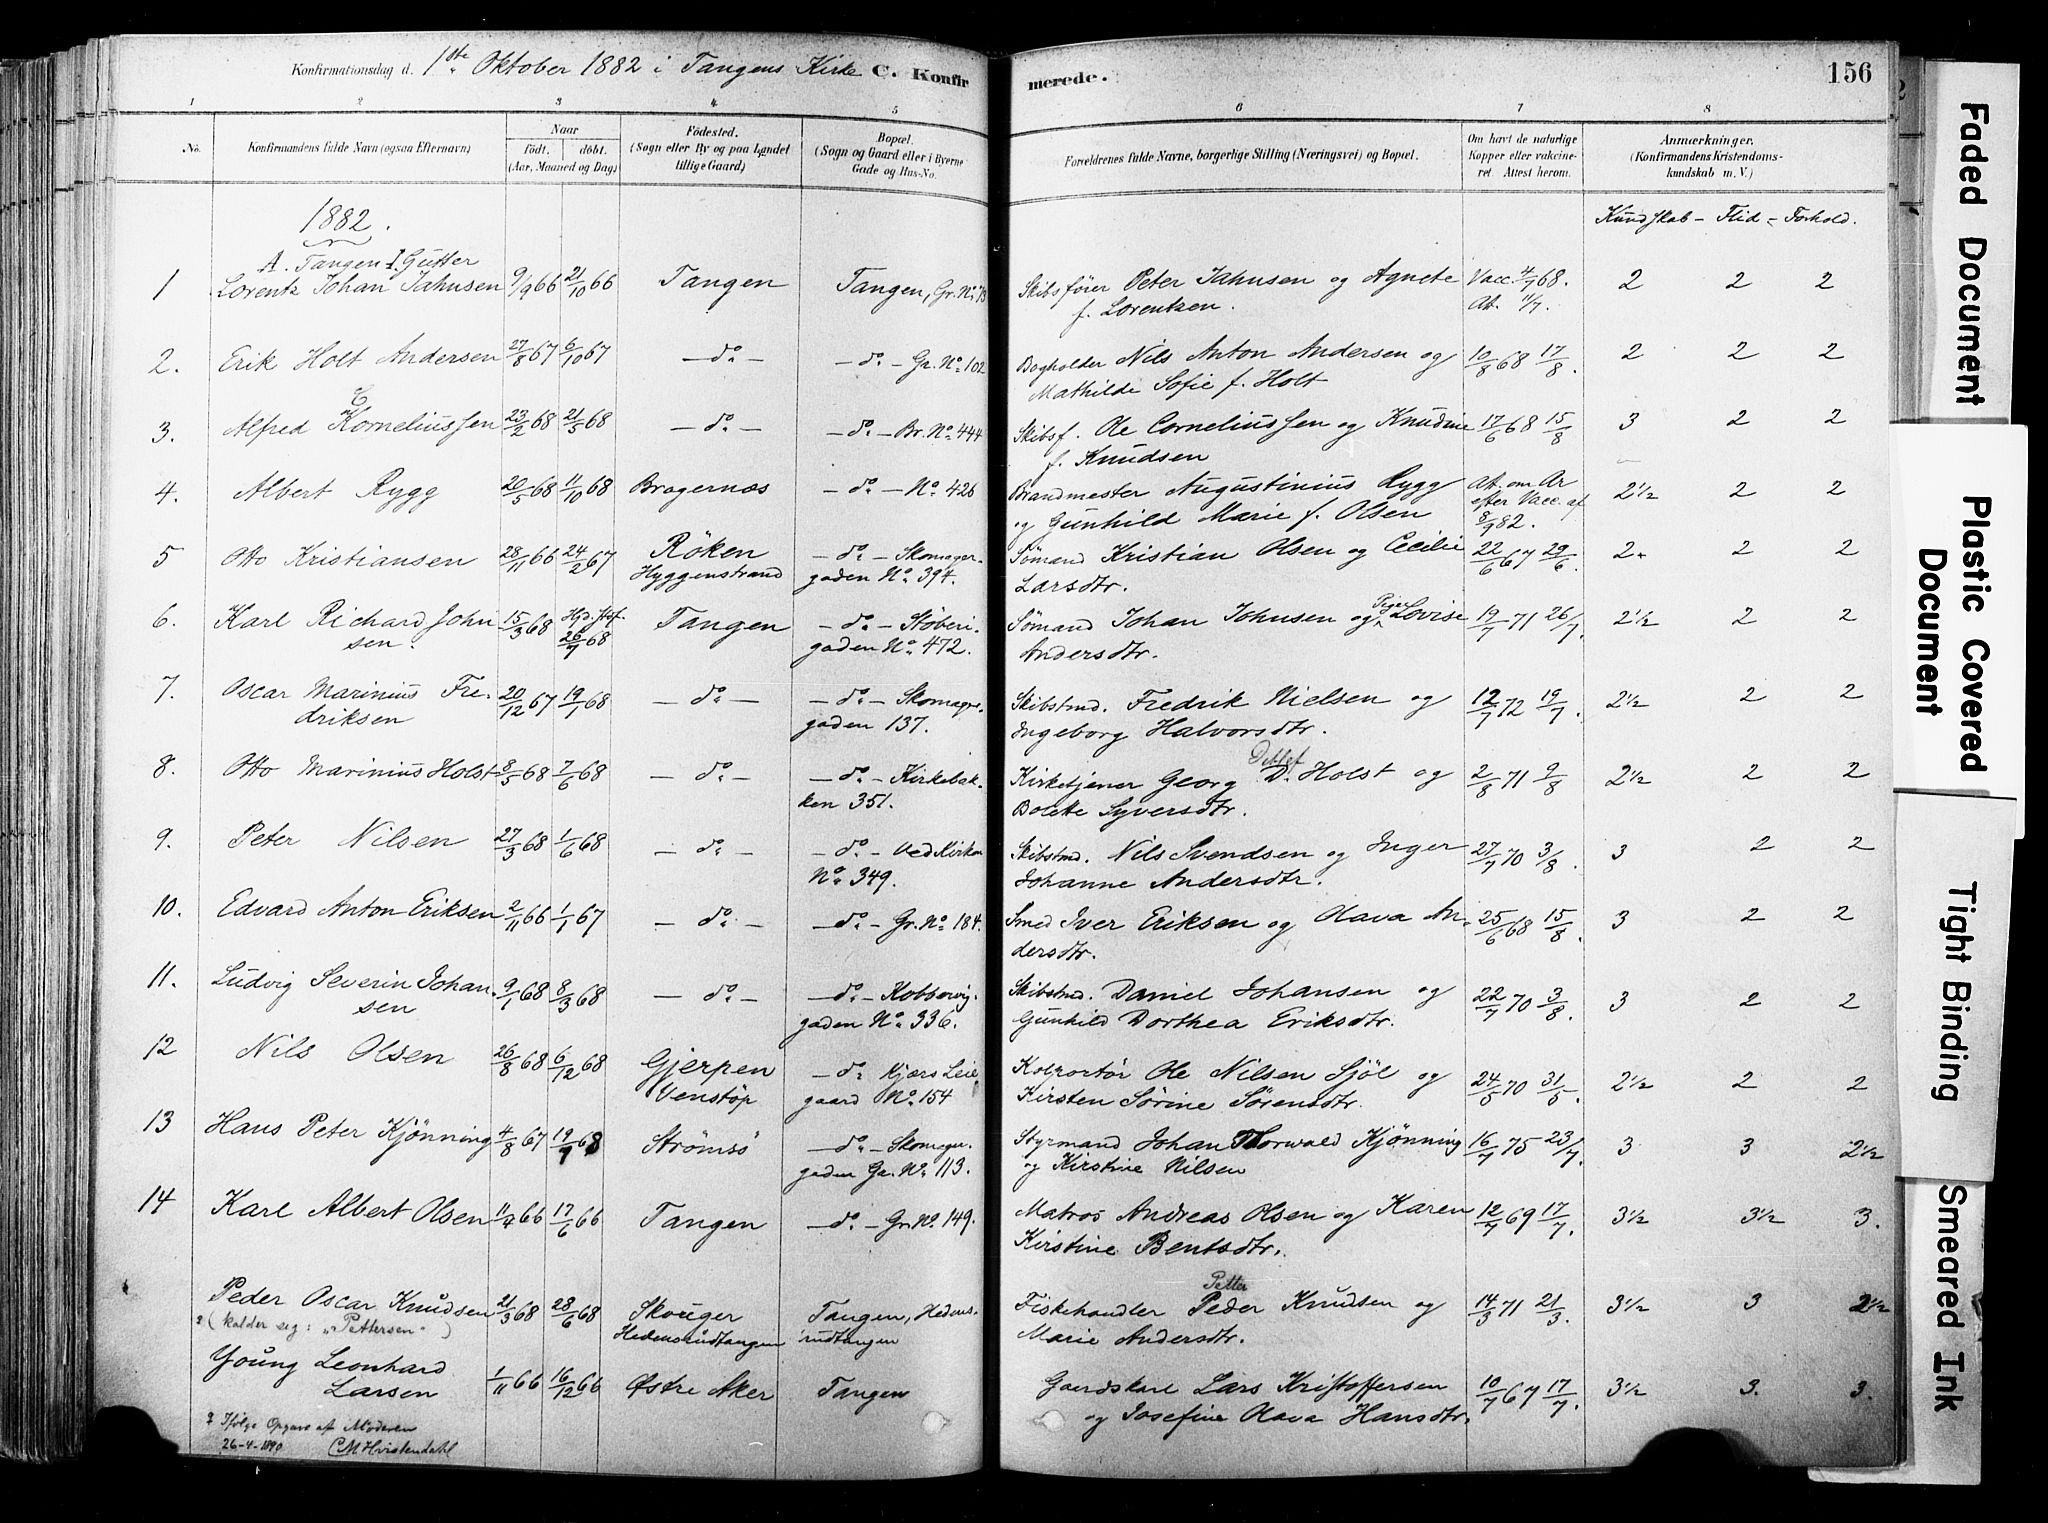 Konfirmationsdag d. 1ste Oktober 1882 i Tangens Kirke C. Konfir
merede. 156
1 2 3 4 5 6 7 8
No. Konfirmandens fulde Navn (ogsaa Efternavn)
Naar
Født. døbt.
(Aar, Maaned og Dag)
Födested.
(Sogn eller By og paa Landet
tillige Gaard)
Bopæl.
(Sogn og Gaard eller i Byerne
Gade og Hus-No.
Forældrenes fulde Navne, borgerlige Stilling (Næringsvei) og Bopæl.
Om havt de naturlige
Kopper eller vakcine-
ret. Attest herom.
Anmærkninger.
(Konfirmandens Kristendoms-
kundskab m. V.)
Kundskab - Flid - Forhold.
1882.
A. Tangen I. Gutter
1 Lorentz Johan Jahnsen 9/9 66 21/10 66 Tangen Tangen, Gr. No. Skibsfører Peter Jahnsen og Agnete Vacc. 4/7 68. 2 2 2
f. Lorentzen. At. 11/7.
2. Erik Holt Andersen 27/8 67 6/10 67 - do - - do - Gr. No. 102 Bogholder Nils Anton Andersen og 10/8 68 17/8. 2 2 2
Mathilde Sofie f. Holt
C
3. Alfred Korneliussen 23/2 68 21/5 68 - do - - do - Br. No. 444 Skibsf. Ole Corneliussen og Knudine 17/6 68 15/8 3 2 2
f. Knudsen
4. Albert Rygg 20/5 68 11/10 68 Bragernæs - do - No. 426 Brandmester Augustinius Rygg At. om Ar 2 1/2 2 2
og Gunhild Marie f. Olsen efter Vacc. af
8/9 82.
5 Otto Kristiansen 28/11 66 24/2 67 Röken - do - Skomager- Sømand Kristian Olsen og Cecilie 22/6 67 29/6. 2 2 2
Hyggenstrand gaden No. 394. Larsdtr.
6. Karl Richard John 15/3 68 Hjd. 26/7 68 Tangen - do - Støberi- Sømand Johan Johnsen og Lovise 19/7 71 26/7. 2 1/2 2 2
sen. gaden No. 472. Andersdtr.
7. Oscar Marinius Fre- 20/12 67 19/1 68 - do - - do - Skomager- Skibstmd. Fredrik Nielsen og 12/7 72 19/7. 2 1/2 2 2
driksen gaden 137. Ingeborg Halvorsdtr.
Detlef
8. Otto Marinius Holst 8/5 68 7/6 68 - do - - do - Kirkebak- Kirketjener Georg D. Holst og 2/8 71 9/8 2 1/2 2 2
ken 351. Bolette Syversdtr.
9. Peter Nilsen 27/3 68 1/6 68 - do - - do - Ved Kirken Skibstmd. Nils Svendsen og Inger 27/7 70 3/8. 3 2 2
No. 349. Johanne Andersdtr.
10. Edvard Anton Eriksen 2/11 66 1/1 67 - do - - do - Gr. No. 184. Smed Iver Eriksen og Olava An- 25/6 68 15/8. 3 2 2
dersdtr.
11. Ludvig Severin Johan- 9/1 68 8/3 68 - do - - do - Kobbervig- Skibstmd. Daniel Johansen og 22/7 70 3/8. 3 2 2
sen gaden No. 336. Gunhild Dorthea Eriksdtr.
12 Nils Olsen 26/8 68 6/12 68 Gjerpen - do Kjærs Leie Kolportør Ole Nilsen Sjöl og 24/5 70 31/5. 2 1/2 2 2
Venstöp gaard No. 154 Kirsten Sörine Sörensdtr.
13 Hans Peter Kjönning 4/8 67 19/7 68 Strömsö - do - Skomager- Styrmand Johan Thorwald Kjönning 16/7 75 23/7. 3 3 2 1/2
gaden Gr. No. 113. og Kirstine Nilsen
14 Karl Albert Olsen 11/4 66 17/6 66 Tangen - do - Gr. No. 149. Matros Andreas Olsen og Karen 12/7 69 17/7. 3 1/2 3 1/2 3.
Kirstine Bentsdtr.
Petter
Peder Oscar Knudsen 21/3 68 28/6 68 Skouger Tangen, Hedens- Fiskehandler Peder Knudsen og 14/3 71 21/3. 3 1/2 3 2 1/2
(kalder sig: "Pettersen") Hedensrudtangen rudtangen Marie Andersdtr.
Young Leonhard
Larsen 1/11 66 16/12 66 Østre Aker Tangen Gaardskarl Lars Kristoffersen 10/7 67 17/7. 3 1/2 3. 3.
og Josefine Olava Hansdtr.
Ifølge Opgave af Moderen
26-4-1890 CM Hvistendahl
Faded Document
Plastic Covered Document
Tight Binding
Smeared Ink